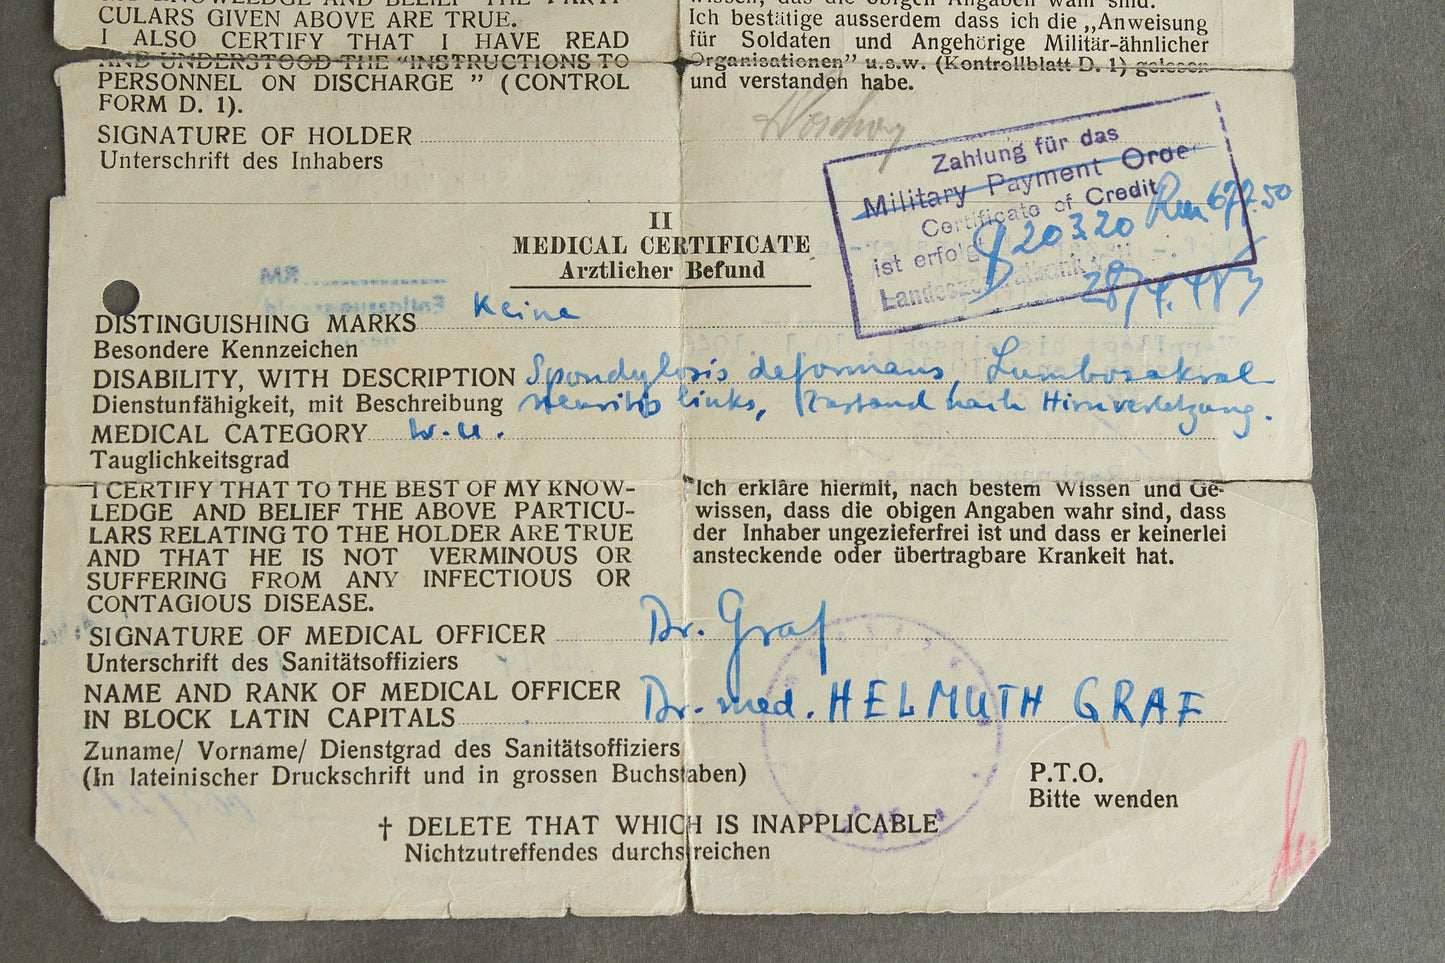 CULARS GIVEN ABOVE ARE TRUE.
I ALSO CERTIFY THAT I HAVE READ
AND UNDERSTOOD THE "INSTRUCTIONS TO
PERSONNEL ON DISCHARGE" (CONTROL
FORM D. 1).
wissen, das die obigen Angaben wahr sind.
Ich bestätige ausserdem dass ich die „Anweisung
für Soldaten und Angehörige Militär-ähnlicher
Organisationen" u.s.w. (Kontrollblatt D. 1) gelesen
und verstanden habe.
SIGNATURE OF HOLDER
Unterschrift des Inhabers
Zahlung für das
Military Payment Order
Certificate of Credit
ist erfolgt
$ 20320 Rm 677.50
28/4.48
II
MEDICAL CERTIFICATE
Arztlicher Befund
RM
DISTINGUISHING MARKS Keine
Besondere Kennzeichen
DISABILITY, WITH DESCRIPTION Spondylosis deformans, Lumbosakral
Dienstunfähigkeit, mit Beschreibung neuritis links, Zustand nach Hirnverletzung.
MEDICAL CATEGORY w.u.
Tauglichkeitsgrad
I CERTIFY THAT TO THE BEST OF MY KNOW-
LEDGE AND BELIEF THE ABOVE PARTICU-
LARS RELATING TO THE HOLDER ARE TRUE
AND THAT HE IS NOT VERMINOUS OR
SUFFERING FROM ANY INFECTIOUS OR
CONTAGIOUS DISEASE.
Ich erkläre hiermit, nach bestem Wissen und Ge-
wissen, dass die obigen Angaben wahr sind, dass
der Inhaber ungezieferfrei ist und dass er keinerlei
ansteckende oder übertragbare Krankeit hat.
SIGNATURE OF MEDICAL OFFICER Dr. Graf
Unterschrift des Sanitätsoffiziers
NAME AND RANK OF MEDICAL OFFICER
IN BLOCK LATIN CAPITALS Dr. med. HELMUTH GRAF
Zuname/ Vorname/ Dienstgrad des Sanitätsoffiziers
(In lateinischer Druckschrift und in grossen Buchstaben)
P.T.O.
Bitte wenden
† DELETE THAT WHICH IS INAPPLICABLE
Nichtzutreffendes durchstreichen